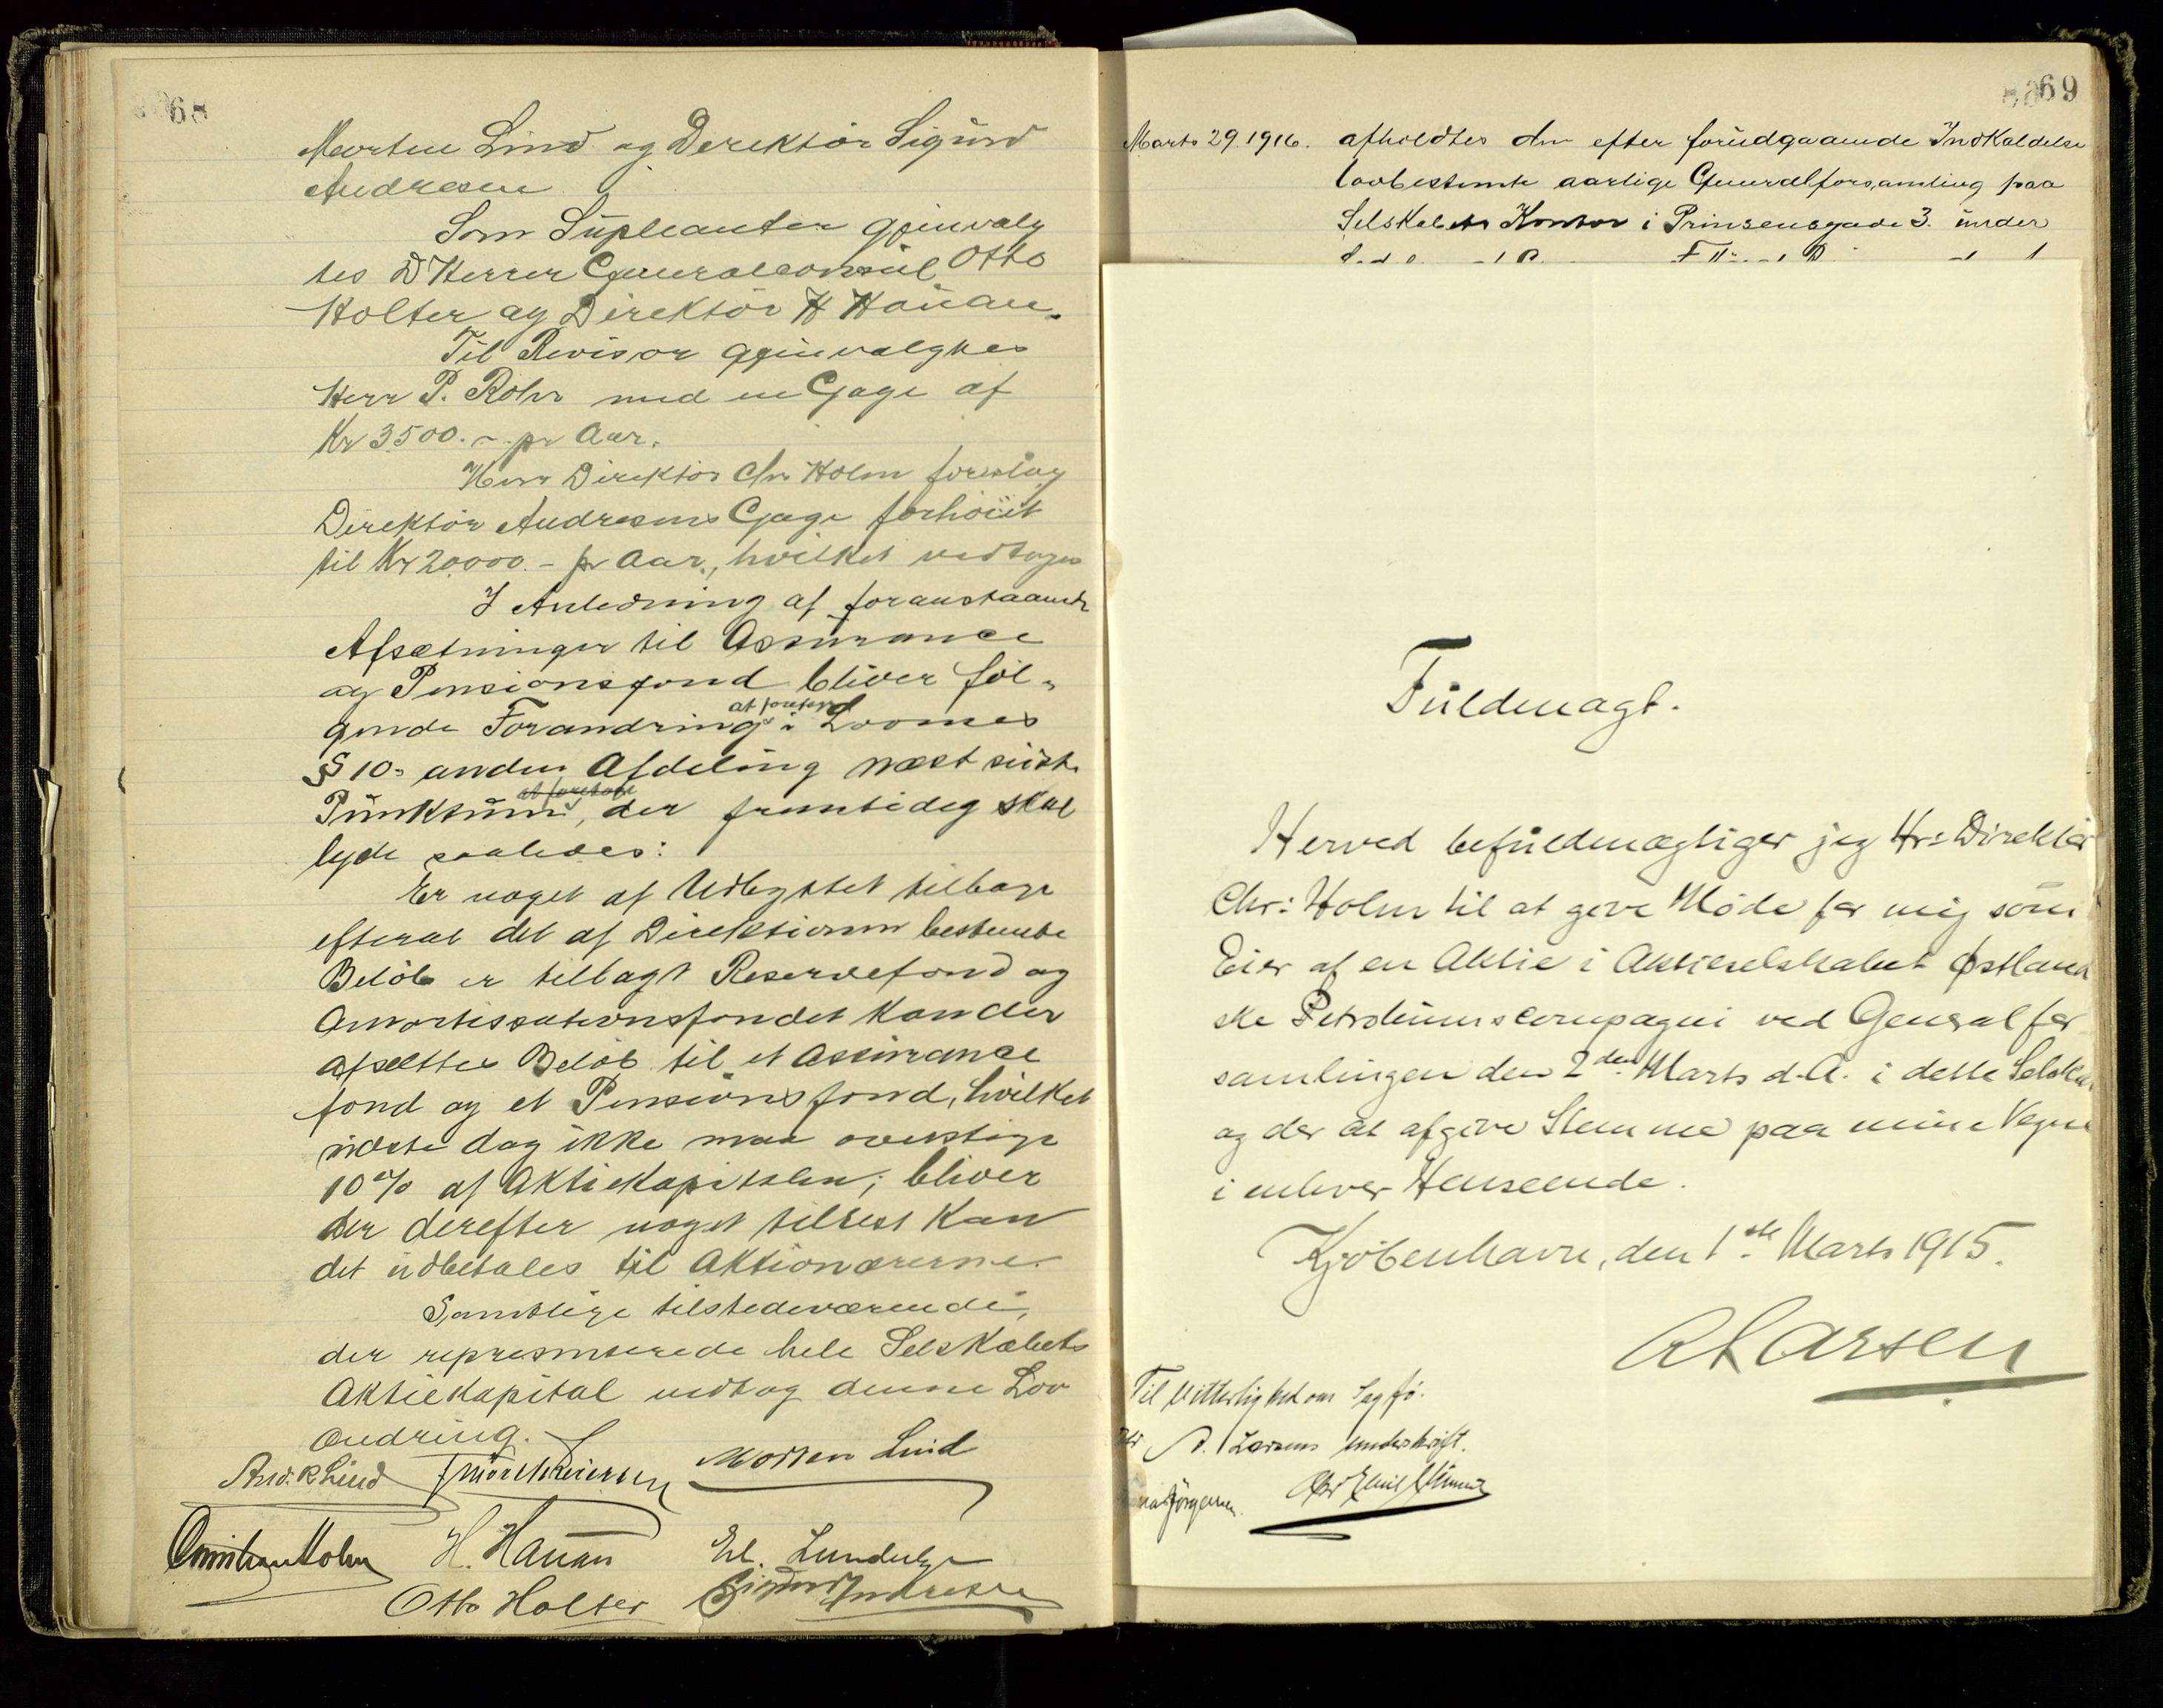 68
Morten Lind og Derektör Sigurd
Andresen
Som Supleanter gjenvalg
tes D'Herrer Generalconsul Otto
Holter og Direktör H Hauan.
Til Revisor gjenvalgtes
Herr P. Rohr med en Gage af
Kr 3500.- pr Aar.
Herr Direktör Chr Holm foreslog
Direktör Andresens Gage forhöiet
til Kr 20.000.- pr Aar., hvilket vedtoges
I Anledning af foranstaaende
Afsætninger til Assurance
og Pensionsfond bliver föl-
gende Forandring at foretage i Lovenes
§ 10. anden Afdeling næst sidste
Punktum at foretage, der fremtideg skal
lyde saaledes:
Er noget af Udbyttet tilbage
efterat det af Direktionen bestemte
Belöb er tillagt Reservefond og
Amortissationsfondet kan der
afsættes Belöb til et Assurance
fond og et Pensionsfond, hvilket
sidste dog ikke maa overstige
10% af Aktiekapitalen; bliver
der derefter noget tilrest kan
det udbetales til Aktionærerne.
Samtlige tilstedeværende,
der represenserede hele Selskabets
Aktiekapital vedtog denne Lov
ondring.
And. R Lind Morten Lind
Christian Holm H. Hauan
Otto Holter Sigurd Andresen
69
Marts 29. 1916. afholdtes den efter forudgaaende Indkaldelse
lovbestemte aarlige Generalforsamling paa
Selskabets Kontor i Prinsensgade 3. under
Fuldmagt.
Herved befuldmægtiger jeg Hr: Direktör
Chr: Holm til at give Möde for mig som
Eier af en Aktie i Aktieselskabet Østland
ske Petroleumscompagni ved Generalfor
samlingen den 2den Marts d.A. i dette Selska
og der at afgive Stemme paa mine Vegne
i enhver Henseende.
Kjöbenhavn, den 1ste Marts 1915.
A Larsen
Til Vitterlighed om
A. Larsens underskrift.